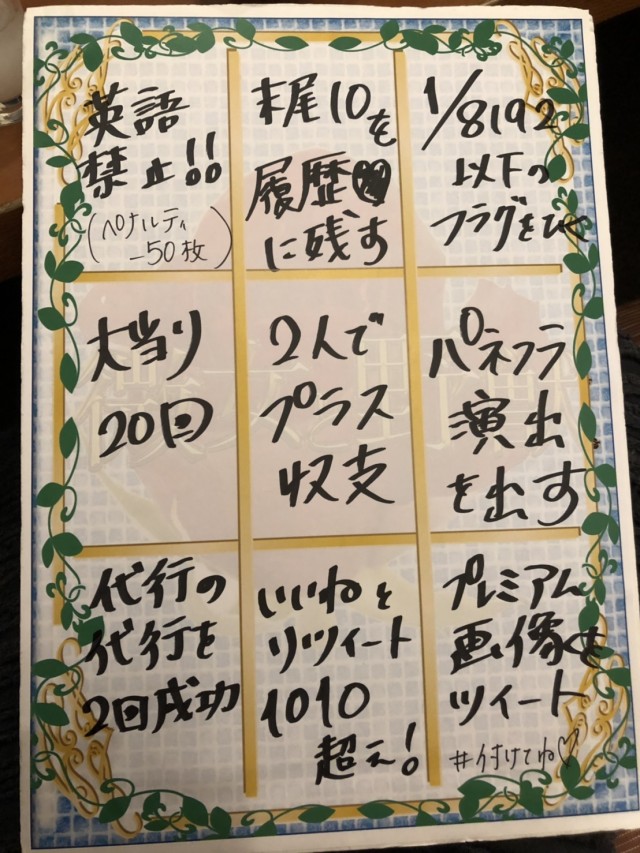 英語
禁止!!
(ペナルティ
-50枚)
末尾10を
履歴
に残す
1/8192
以下の
フラグをひく
大当り
20回
2人で
プラス
収支
パネフラ
演出
を出す
代行の
代行を
2回成功
いいねと
リツイート
1010
超え!
プレミアム
画像を
ツイート
#付けてね♡